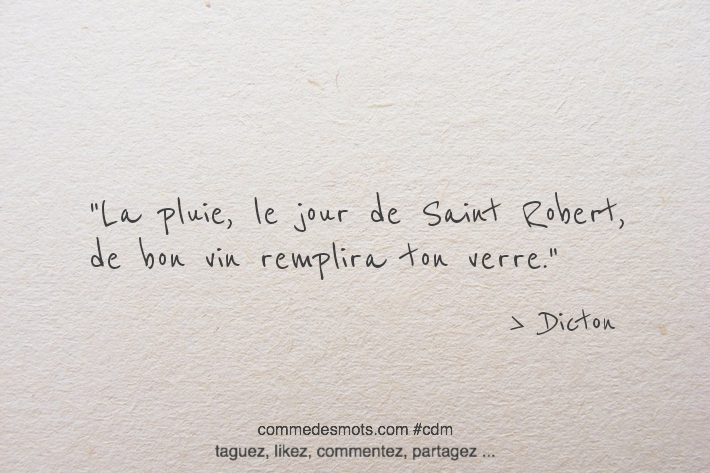 "La pluie, le jour de Saint Robert,
de bon vin remplira ton verre."
> Dicton
commedesmots.com #cdm
taguez, likez, commentez, partagez ...